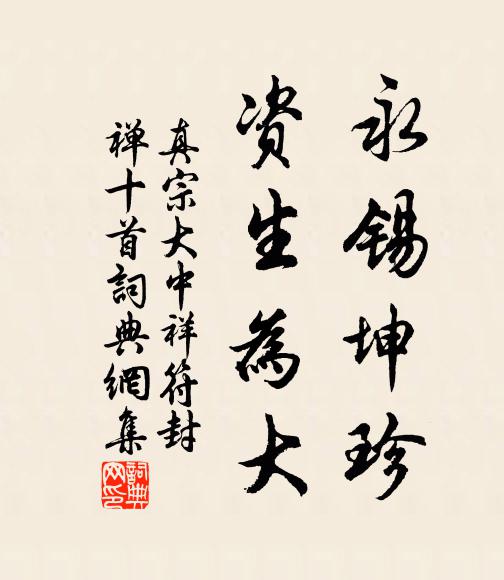 永锡坤珍
资生為大
真宗大中祥符封
禅十首詞典網集
詞典网印